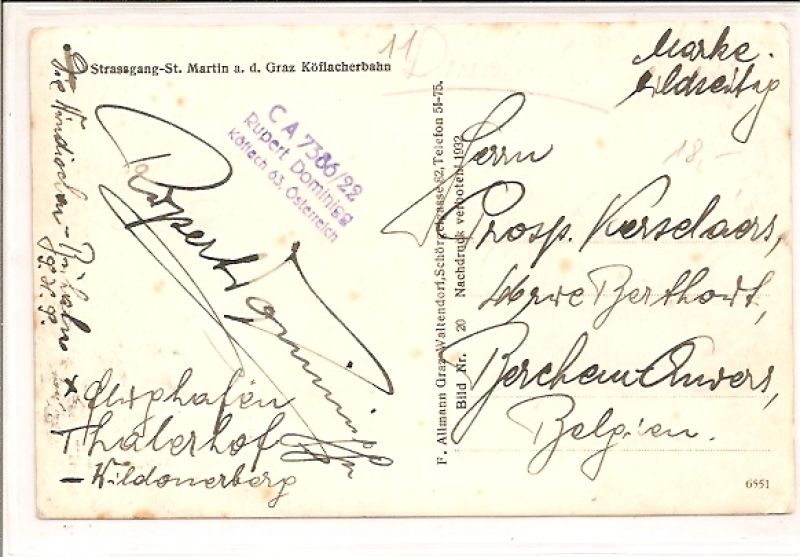 Strassgang-St. Martin a. d. Graz Köflacherbahn
11
Marke.
Bildseitig
18,-
CA 7386/22
Rupert Dominigg
Köflach 63, Österreich
Rupert Dominigg
x Flughafen
Thalerhof
- Wildonerberg
F. Allmann Graz-Waltendorf, Schörgelgasse 82, Telefon 51-75.
Bild Nr. 20 Nachdruck verboten! 1932
Herrn
Prosp. Kerselaers,
Berthout,
Berchem-Anvers,
Belgien.
6551